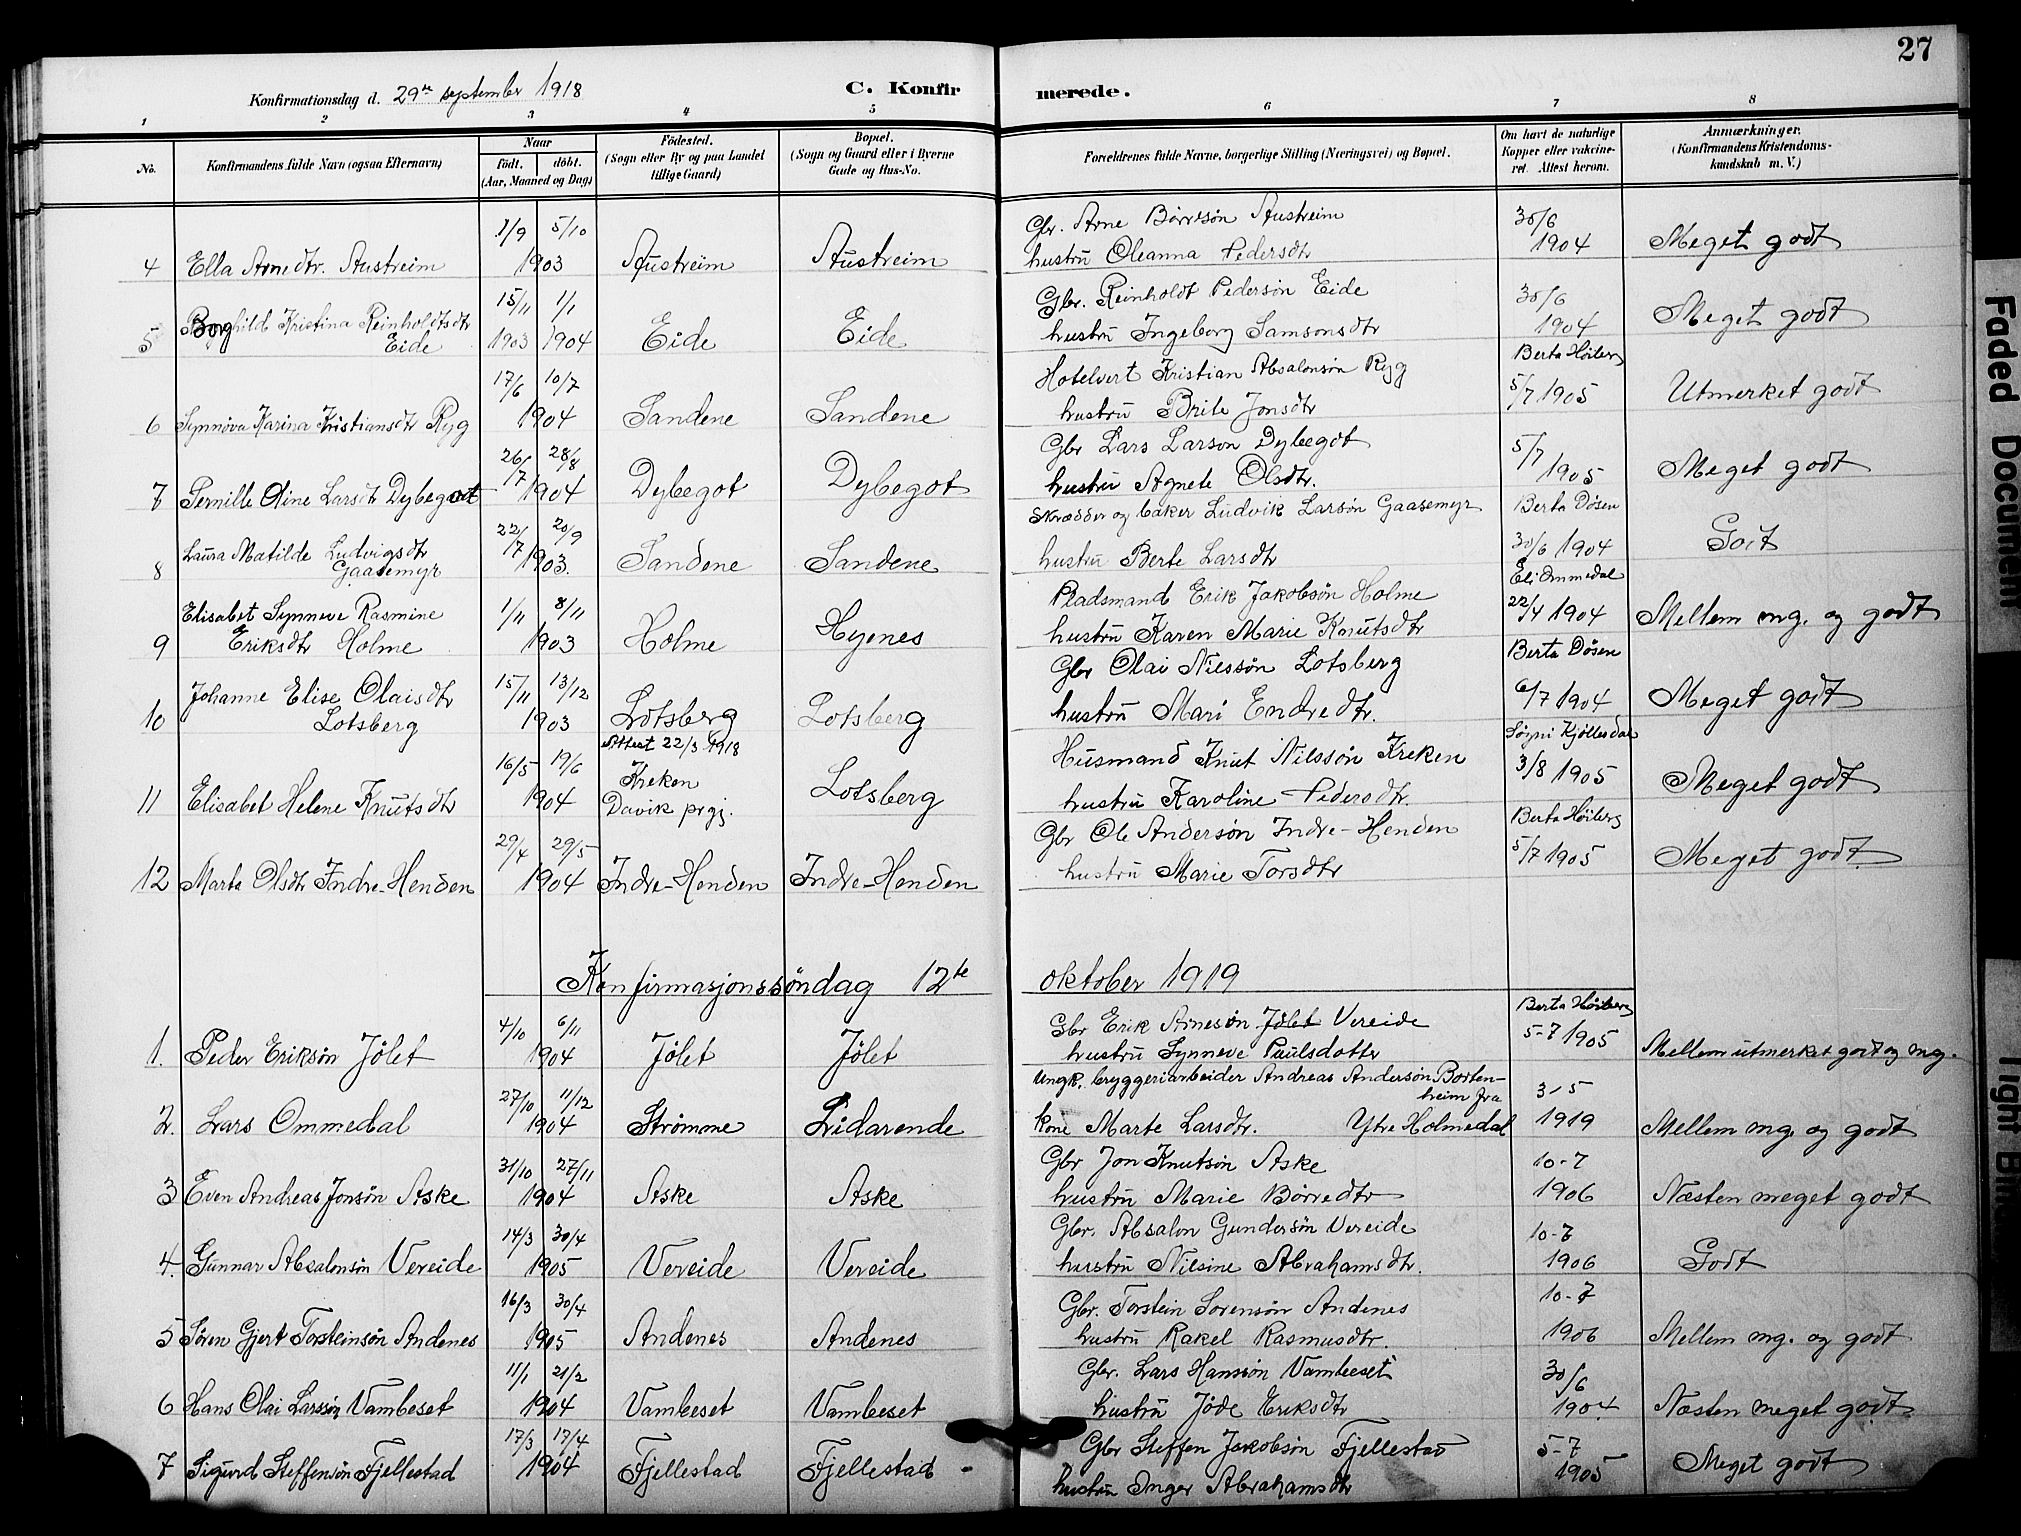 27
Konfirmationsdag d. 29de september 1918 C. Konfirmerede.
1 2 3 4 5 6 7 8
No.
Konfirmandens fulde Navn (ogsaa Efternavn)
Naar
födt. döbt.
(Aar, Maaned og Dag)
Födested.
(Sogn eller By og paa Landet
tillige Gaard)
Bopæl.
(Sogn og Gaard eller i Byerne
Gade og Hus-No.
Forældrenes fulde Navne, borgerlige Stilling (Næringsvei) og Bopæl.
Om havt de naturlige
Kopper eller vakcine-
ret. Attest herom.
Anmærkninger.
(Konfirmandens Kristendoms-
kundskab m. V.)
1/9 5/10 Gbr. Arne Börresön Austreim 30/6
4 Ella Arnedtr. Austreim 1903 Austreim Austreim hustru Oleanna Pedersdtr 1904 Meget godt
15/11 1/1 Gbr. Reinholdt Pedersön Eide 30/6
5 Borghild Kristina Reinholdtsdtr
Eide 1903 1904 Eide Eide hustru Ingeborg Samsonsdtr 1904 Meget godt
17/6 10/7 Hotelvert Kristian Absalonsön Ryg Berta Höiberg
6 Synnöva Karina Kristiansdtr Ryg 1904 Sandene Sandene hustru Brite Jonsdtr 5/7 1905 Utmerket godt
26/7 28/8 Gbr Lars Larson Dybegot 5/7
7 Pernille Oline Larsdtr Dybegot 1904 Dybegot Dybegot hustru Agnete Olsdtr. 1905 Meget godt
22/7 20/9 Skrædder og baker Ludvik Larsön Gaasemyr Berta Dösen
8 Laura Matilde Ludvigsdtr
Gaasemyr 1903. Sandene Sandene hustru Berte Larsdtr 30/6 1904 Godt
Elisabet Synneve Rasmine 1/11 8/11 Pladsmand Erik Jakobsön Holme Eli Ommedal
9 Eriksdtr Holme 1903 Holme Hyenes hustru Karen Marie Knutsdtr 22/4 1904 Mellem mg. og godt
Johanne Elise Olaisdtr 15/11 13/12 Gbr Olai Nilssön Lotsberg Berta Dösen
10 Lotsberg 1903 Lotsberg Lotsberg hustru Mari Endredtr. 6/7 1904 Meget godt
16/5 19/6 Attest 22/3 1918 Husmand Knut Nilssön Kreken Sögni Kjöllesdal
11 Elisabet Helene Knutsdtr 1904 Kreken
Davik prgj. Lotsberg hustru Karoline Pedersdtr. 3/8 1905 Meget godt
29/4 29/5 Gbr Ole Andersön Indre-Henden Berta Höiberg
12 Marta Olsdtr Indre-Henden 1904 Indre-Henden Indre-Henden hustru Marie Torsdtr 5/7 1905 Meget godt
Konfirmasjonssöndag 12te oktober 1919
4/10 6/11 Gbr Erik Arnesön Jölet Vereide Berta Höiberg
1. Peder Eriksön Jölet 1904 Jölet Jölet hustru Synneve Paulsdotter 5-7 1905 Mellem utmerket godt og mg.
27/10 11/12 Ungk. bryggeriarbeider Andreas Andersön Borten-
heim fra 3-5
2. Lars Ommedal 1904 Strömme Eidarende kone Marte Larsdtr. Ytre Holmedal 1919 Mellem mg. og godt
31/10 27/11 Gbr Jon Knutsön Aske 10-7
3 Even Andreas Jonsön Aske 1904 Aske Aske hustru Marie Börredtr 1906 Næsten meget godt
14/3 30/4 Gbr. Absalon Gundersön Vereide 10-7
4. Gunnar Absalonsön Vereide 1905 Vereide Vereide hustru Nilsine Abrahamsdtr. 1906 Godt
16/3 30/4 Gbr. Torstein Sorensön Andenes 10-7
5 Sören Gjert Torsteinsön Andenes 1905 Andenes Andenes hustru Rakel Rasmusdtr. 1906 Mellem mg. og godt
11/1 21/2 Gbr. Lars Hanssön Vambeset 30/6
6 Hans Olai Larssön Vambeset 1904 Vambeset Vambeset hustru Jöde Eriksdtr 1904. Næsten meget godt
17/3 17/4 Gbr Steffen Jakobsön Fjellestad 5-7
7 Sigurd Steffensön Fjellestad 1904 Fjellestad Fjellestad hustru Inger Abrahamsdtr 1905 Meget godt
Faded Document
Tight